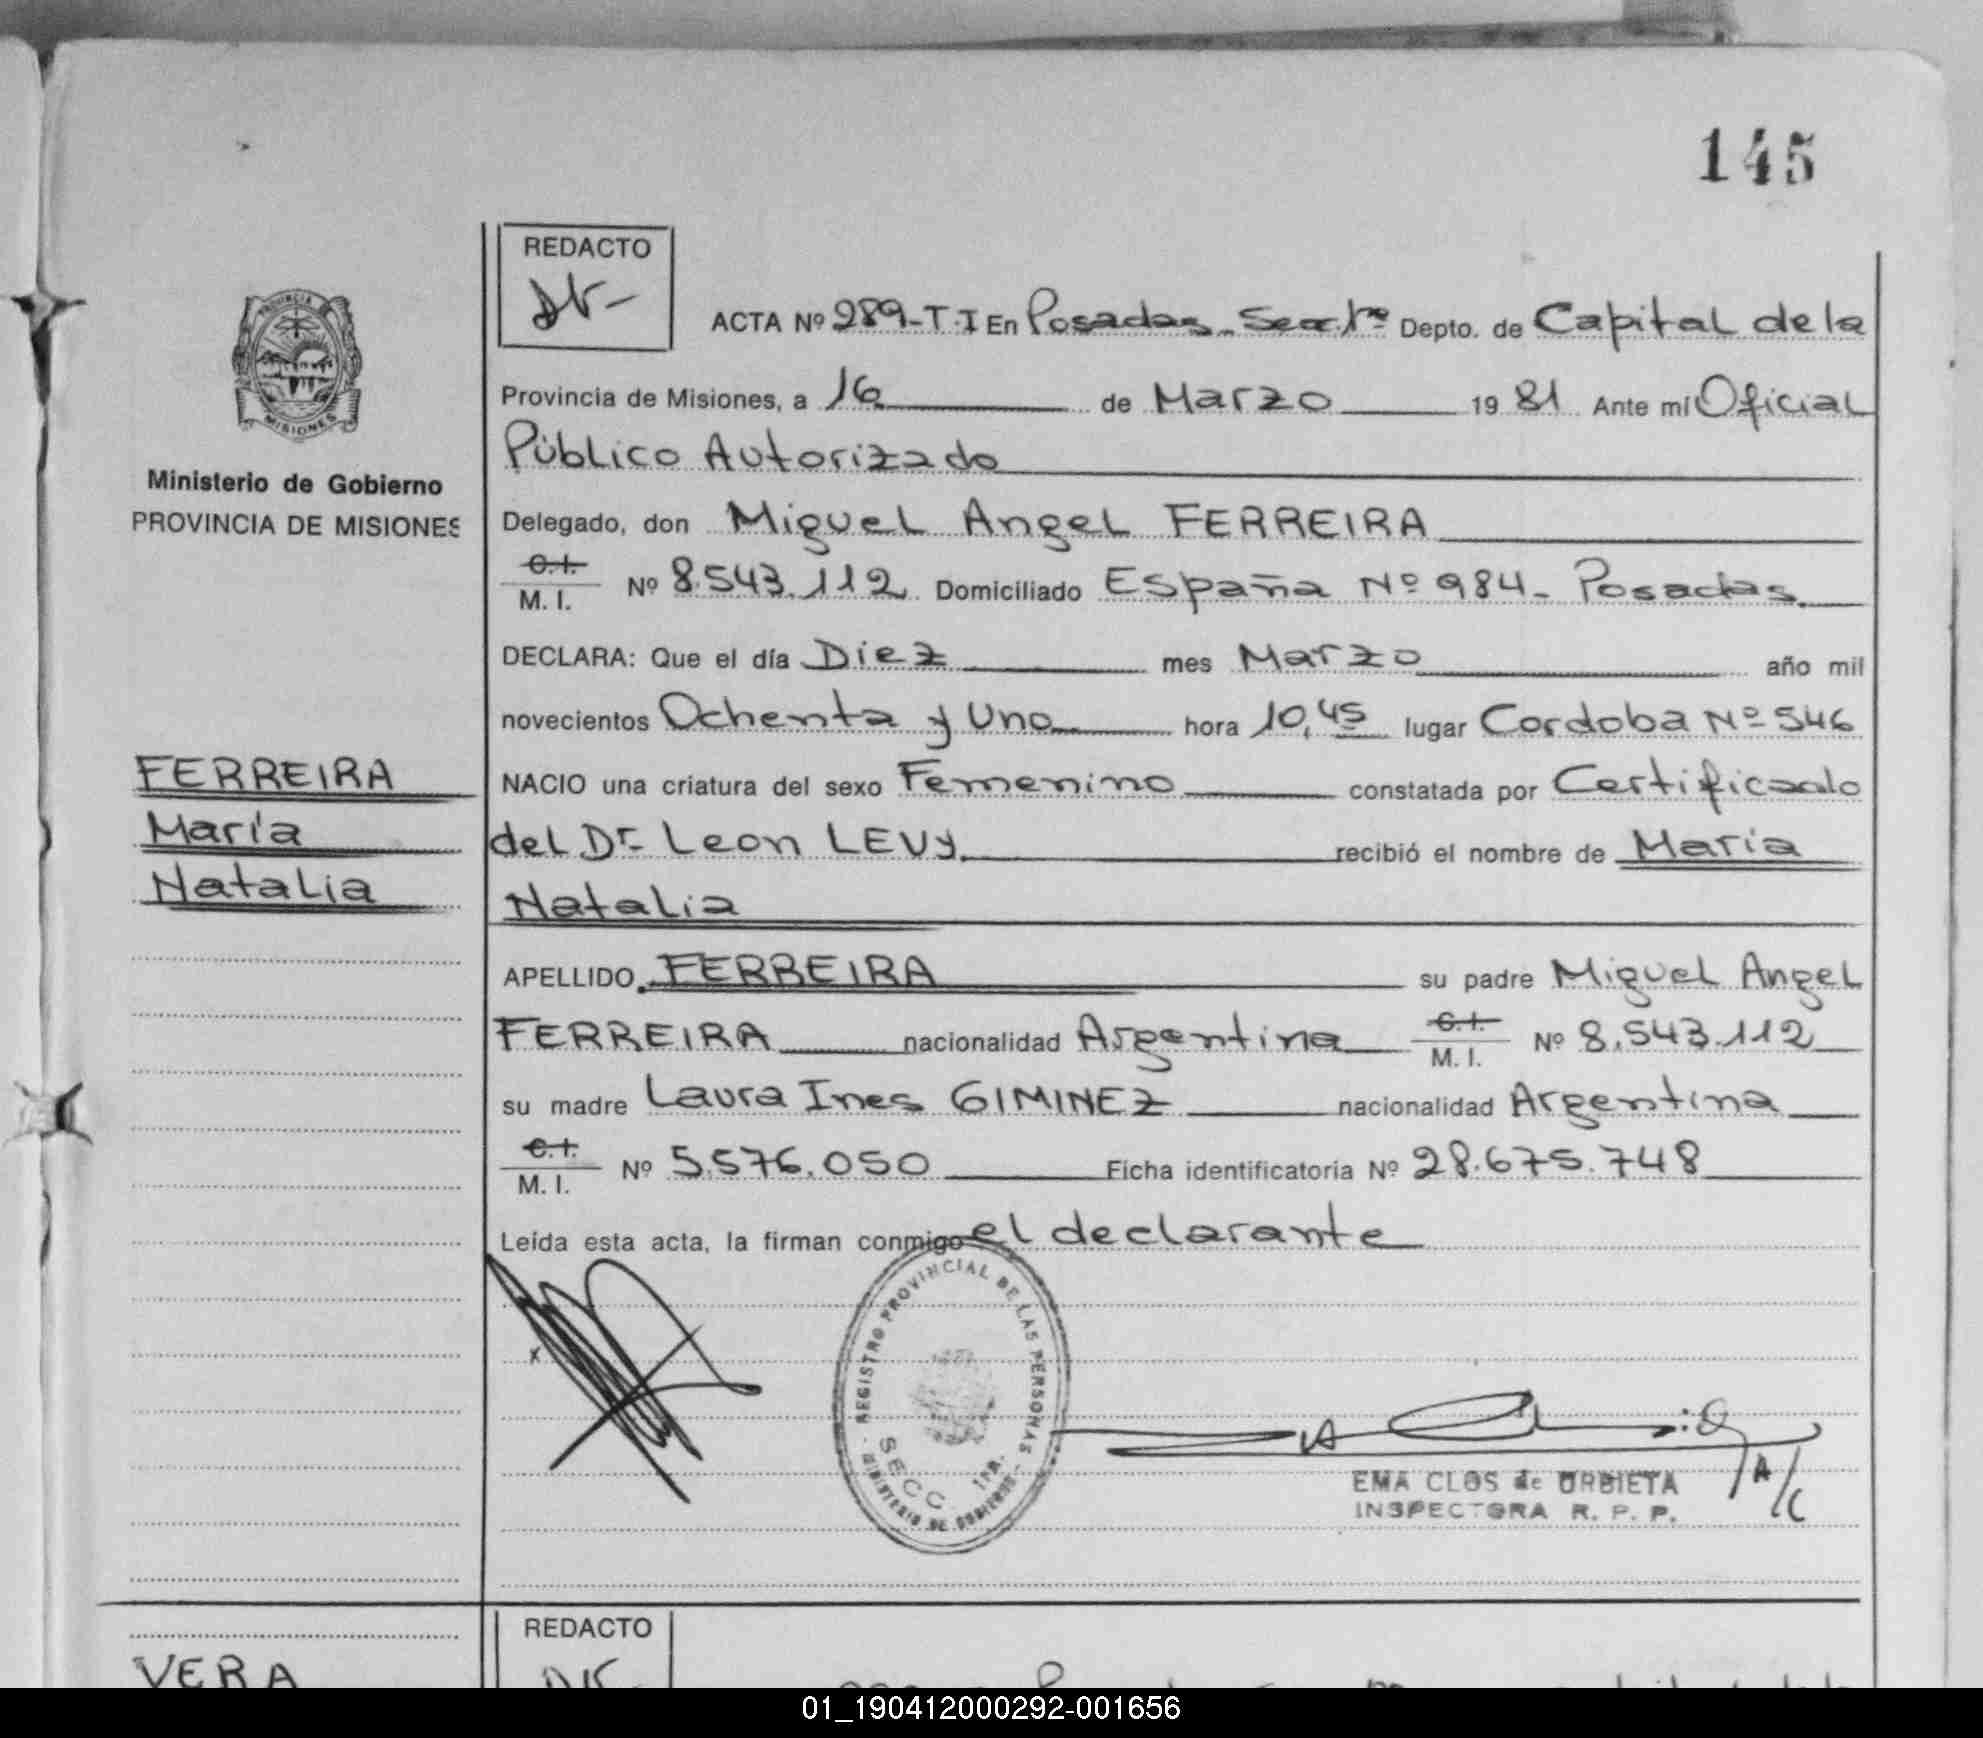 145
REDACTO
PROVINCIA
MISIONES
ACTA Nº 289-T.I En Posadas Depto. de Capital de la
Provincia de Misiones, a 16 de Marzo 1981 Ante mí Oficial
Público Autorizado
Ministerio de Gobierno
PROVINCIA DE MISIONES
Delegado, don Miguel Angel FERREIRA
C.I.
M. I. Nº 8.543.112 Domiciliado España Nº 984 - Posadas
DECLARA: Que el día Diez mes Marzo año mil
novecientos Ochenta y Uno hora 10,45 lugar Cordoba Nº 546
FERREIRA
María
Natalia
NACIO una criatura del sexo Femenino constatada por Certificado
del Dr. Leon LEVY. recibió el nombre de María
Natalia
APELLIDO FERREIRA su padre Miguel Angel
FERREIRA nacionalidad Argentina C.I. M. I. Nº 8.543.112
su madre Laura Ines GIMINEZ nacionalidad Argentina
C.I.
M. I. Nº 5.576.050 Ficha identificatoria Nº 28.675.748
Leída esta acta, la firman conmigo el declarante
REGISTRO PROVINCIAL DE LAS PERSONAS
MINISTERIO DE GOBIERNO
SECC. 1RA.
A/C
EMA CLOS de URBIETA
INSPECTORA R. P. P.
REDACTO
VERA
01_190412000292-001656